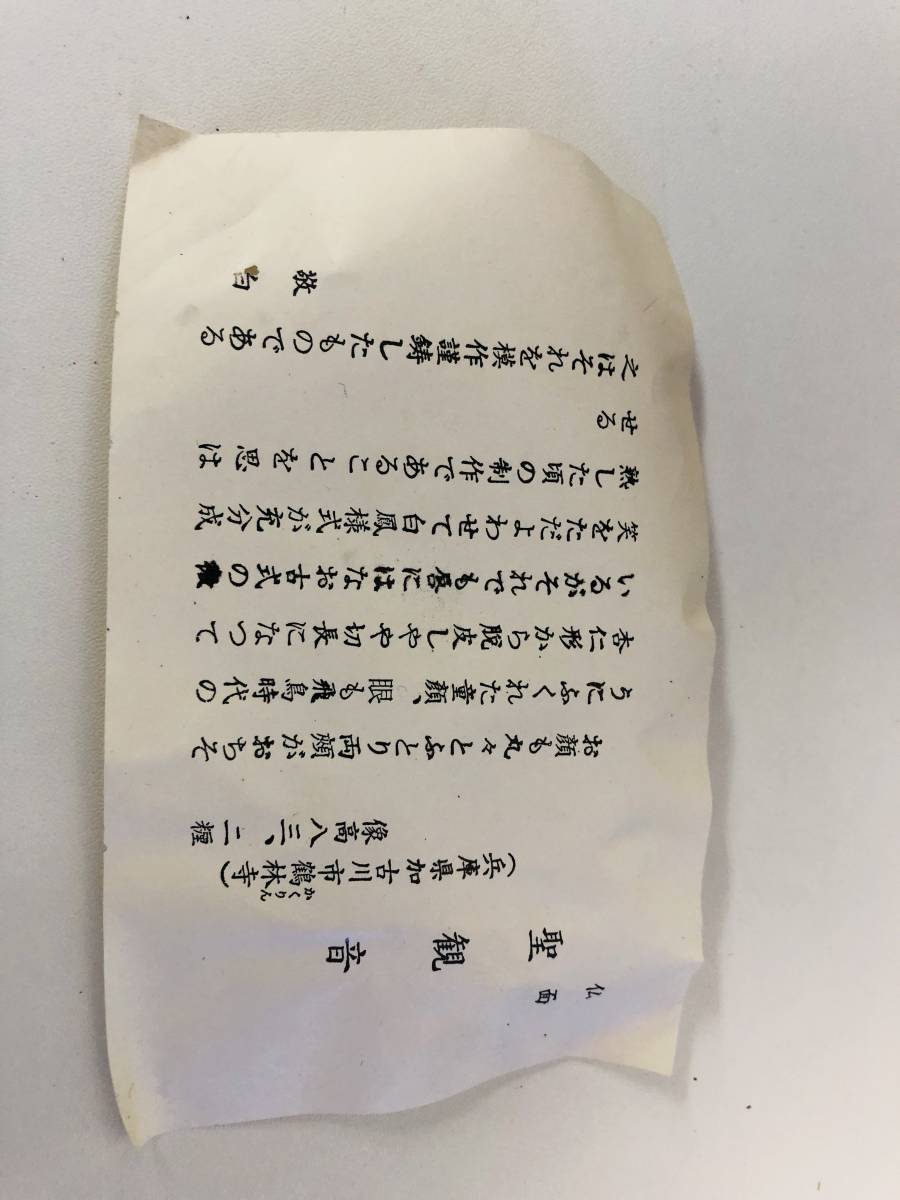 仏面
聖観音
（兵庫県加古川市鶴林寺）
かくりん
像高八三、二糎
お顔も丸々とふとり両頬がおちそ
うにふくれた童顔、眼も飛鳥時代の
杏仁形から脱皮しやや切長になつて
いるがそれでも唇にはなお古式の微
笑をただよわせて白鳳様式が充分成
熟した頃の制作であることを思は
せる
之はそれを模作謹鋳したものである
敬白